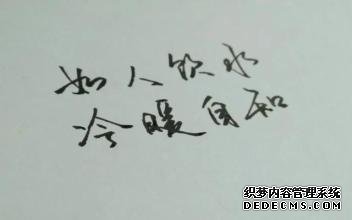 如人饮水
冷暖自知
织梦内容管理系统
DEDECMS.COM